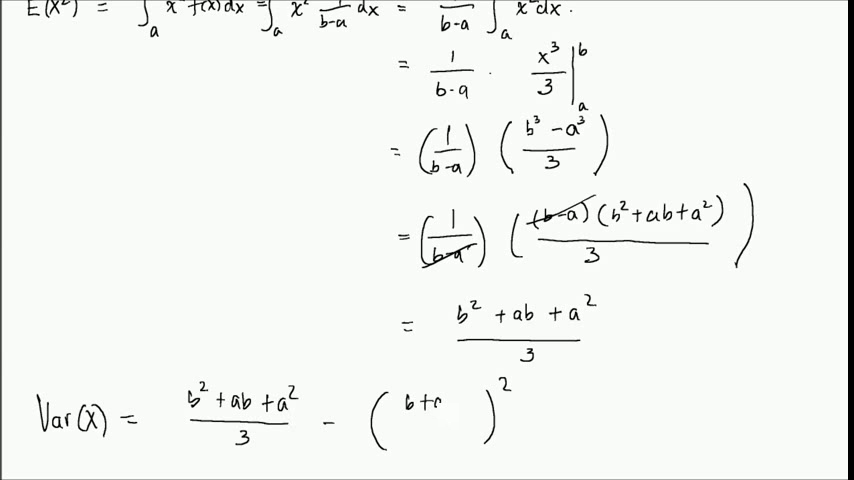 E(X²) = ∫ₐ x² f(x) dx = ∫ₐ x² 1/(b-a) dx = 1/(b-a) ∫ₐ x² dx.
= 1/(b-a) · x³/3 |ₐᵇ
= (1/(b-a)) ((b³ - a³)/3)
= (1/(b-a)) ((b-a)(b² + ab + a²)/3)
= (b² + ab + a²)/3
Var(X) = (b² + ab + a²)/3 - (b+ )²